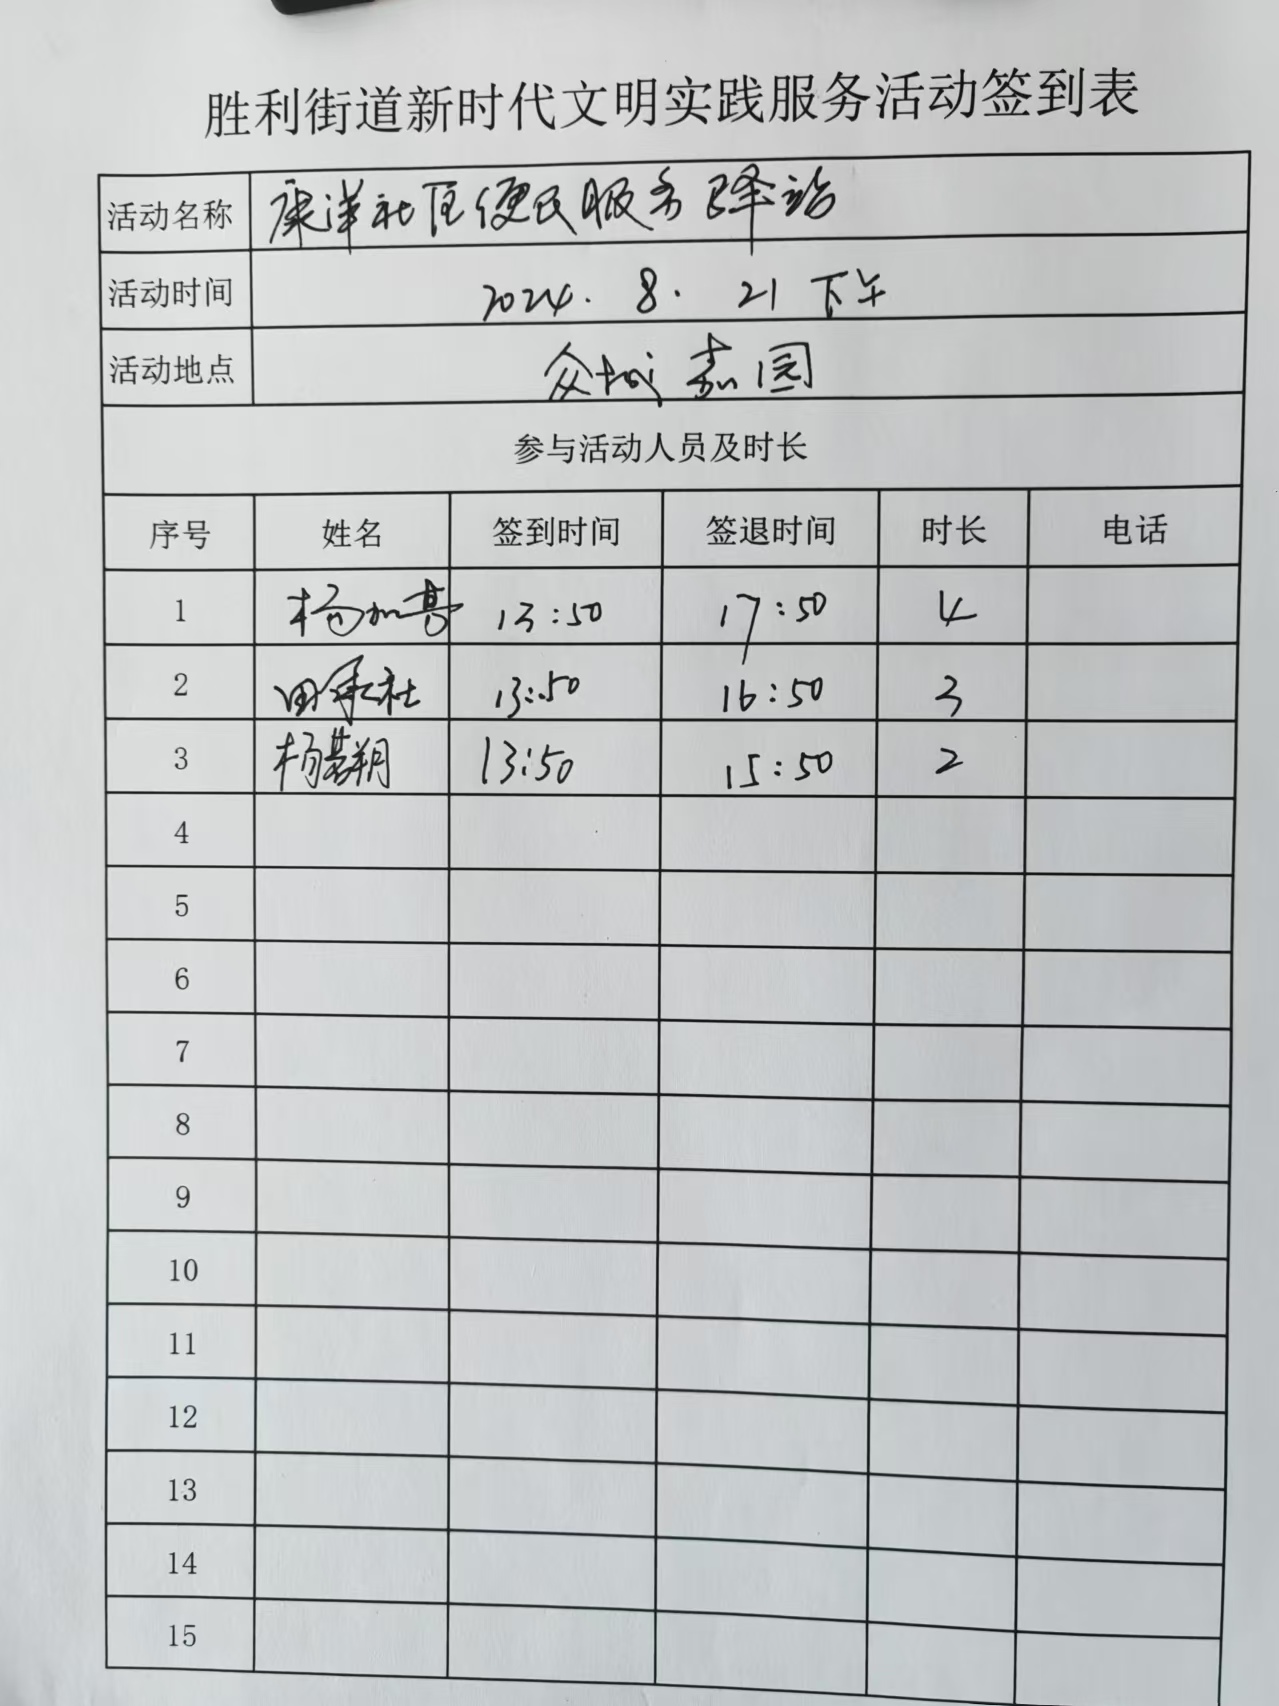 胜利街道新时代文明实践服务活动签到表
活动名称 康洋社区便民服务驿站
活动时间 2024. 8. 21 下午
活动地点 众城嘉园
参与活动人员及时长
序号 姓名 签到时间 签退时间 时长 电话
1 杨加 13:50 17:50 4
2 田承社 13:50 16:50 3
3 杨基朔 13:50 15:50 2
4
5
6
7
8
9
10
11
12
13
14
15